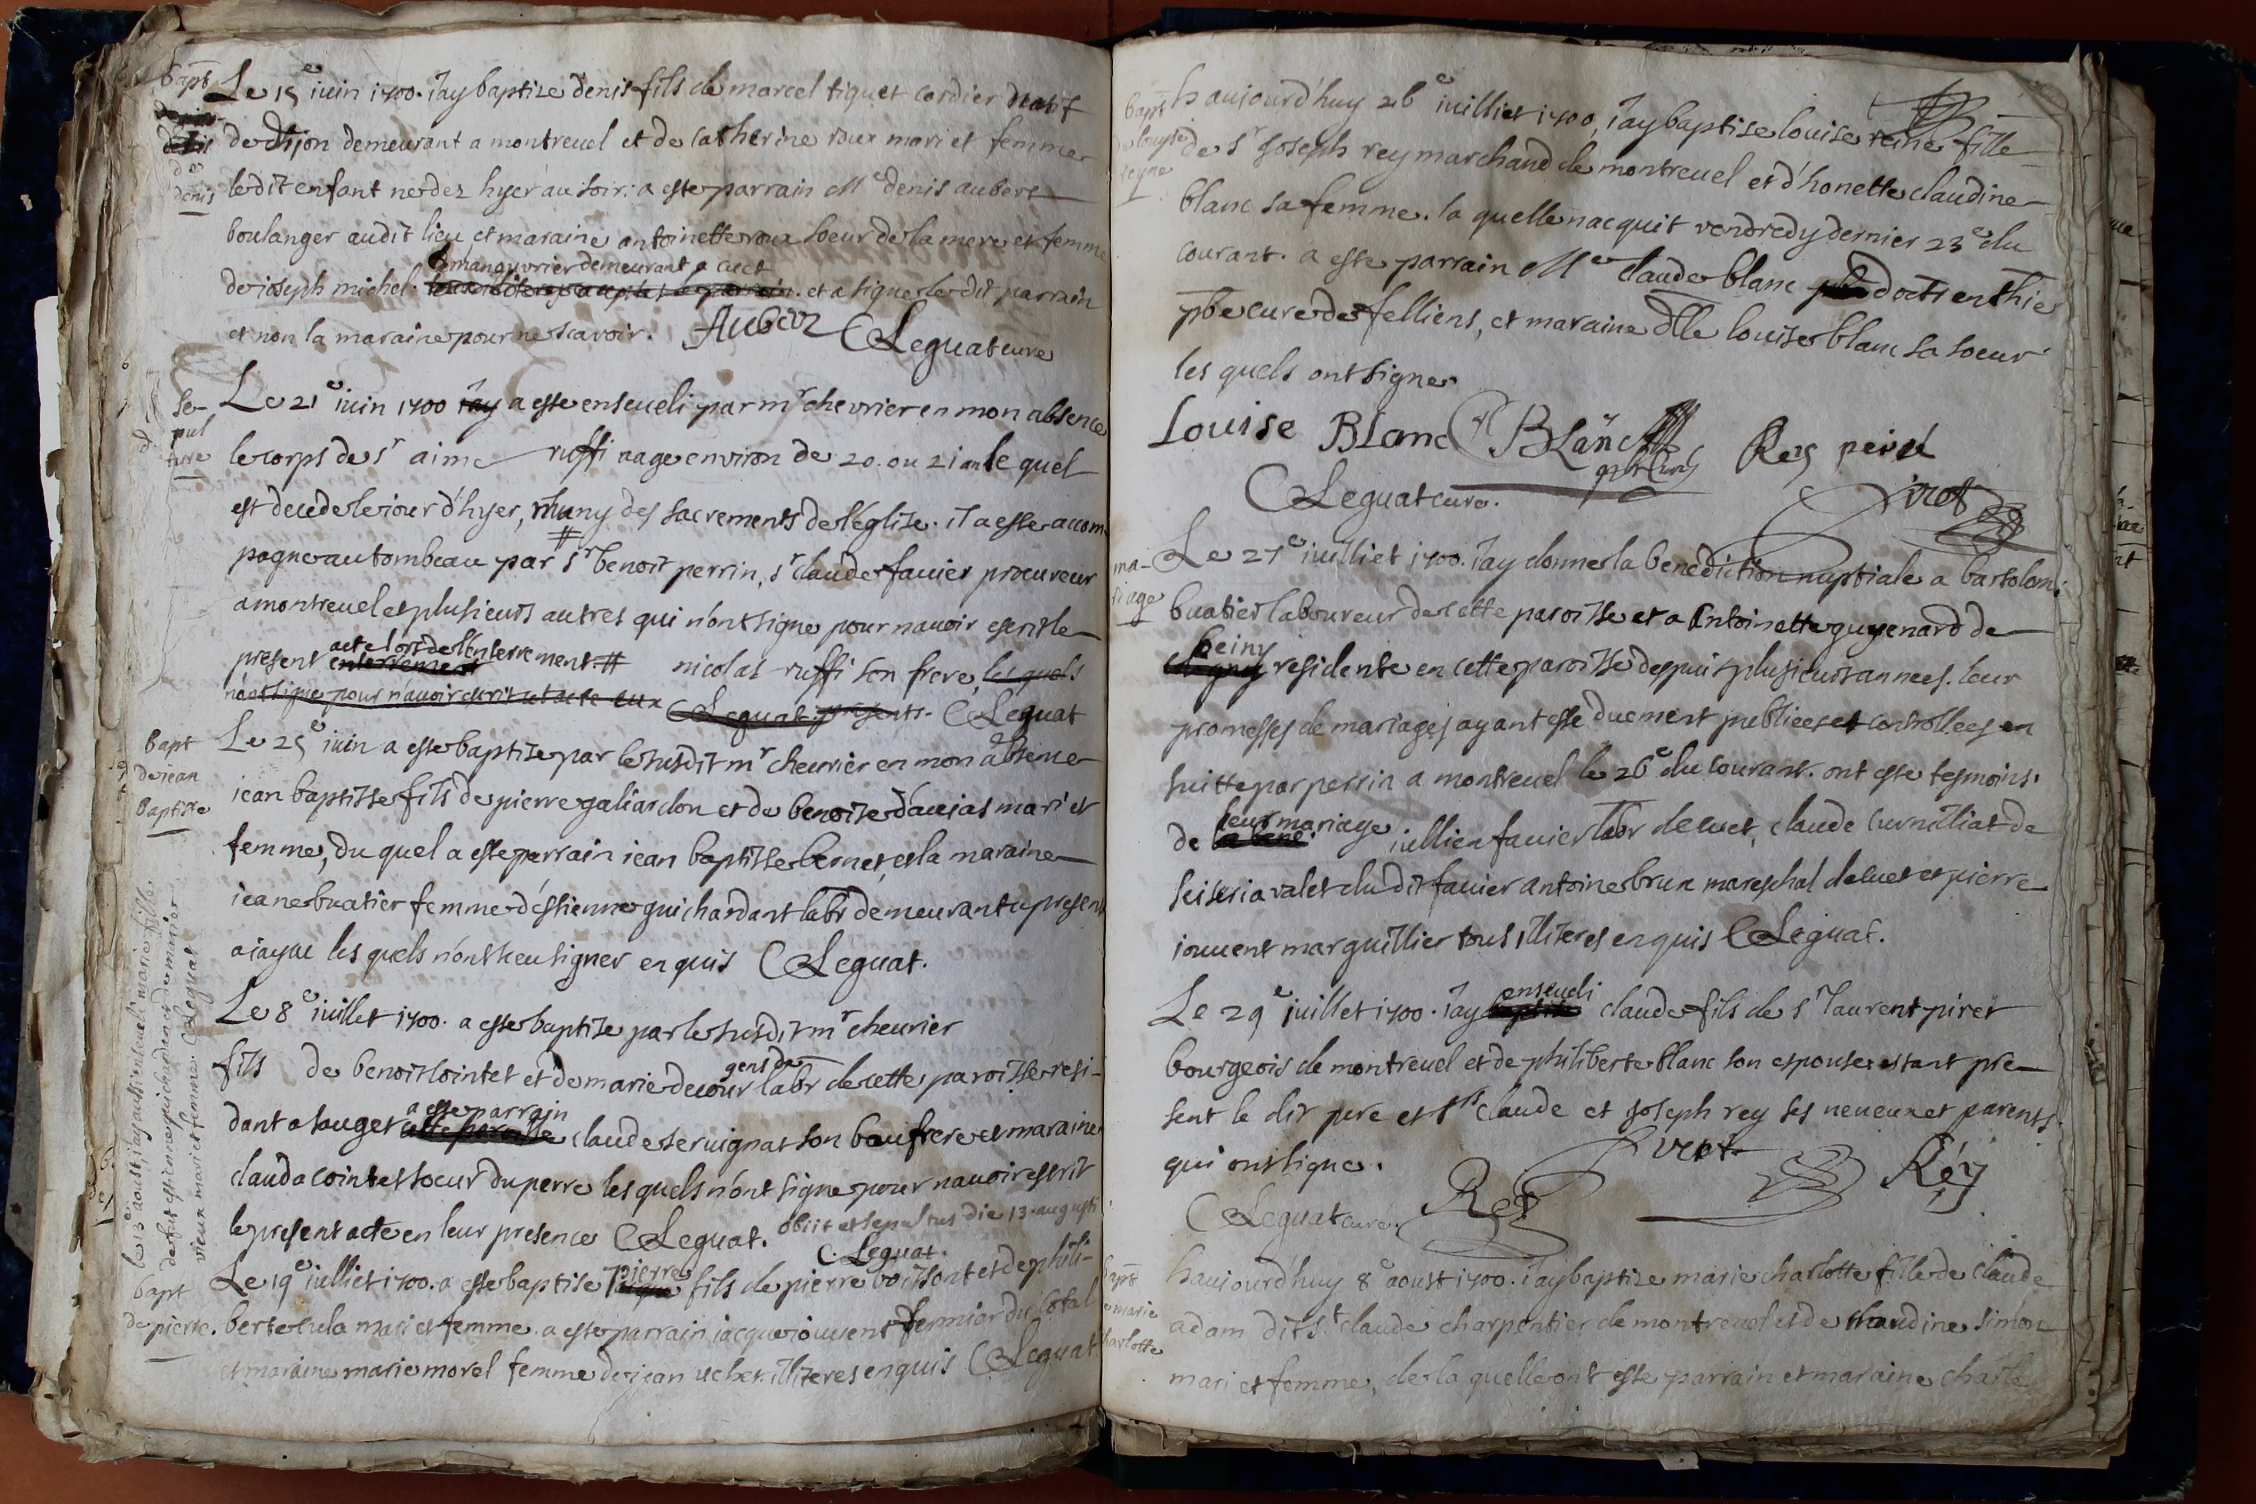 bapt
de
denis
Le 15e iuin 1700. Jay baptize denis fils de marcel tiquet cordier natif
de dijon demeurant a montreuel et de catherine roux mari et femme
ledit enfant ne dez hyer au soir. a este parrain Me denis aubert
boulanger audit lieu et maraine antoinette roux soeur de la mere et femme
de ioseph michel. manouvrier demeurant a cuet et a signer le dit parrain
et non la maraine pour ne scavoir. Aubert CLeguat cure
se-
pul
ture
Le 21e iuin 1700 a este enseueli par mr cheurier en mon absence
le corps de sr aime ruffi aage environ de 20. ou 21 an le quel
est decede le iour d'hyer, muny des sacrements de l'eglize. il a este accom
pagne au tombeau par sr benoit perrin, sr claude fauier procureur
a montreuel et plusieurs autres qui n'ont signe pour nauoir escrit le
present acte lors de l'enterrement # nicolas ruffi son frere, les quels
n'ont signe pour n'auoir escrit
CLeguat presents. CLeguat
bapt
de jean
baptiste
Le 25e iuin a este baptize par le susdit mr cheurier en mon absence
iean baptiste fils de pierre galiardon et de benoite daujas mari et
femme, du quel a este parrain iean baptiste bernet, et la maraine
ieane buatier femme d'estienne guichardant labr demeurant a present
a iayac les quels n'ont sceu signer enquis CLeguat.
Le 8e iuillet 1700. a este baptize par le susdit mr cheurier
fils de benoit cointet et de marie decour gens de labr de cette paroisse resi-
dant a sauget a este parrain claude seruignat son beaufrere et maraine
clauda cointet soeur du perre les quels n'ont signe pour nauoir escrit
le present acte en leur presence CLeguat. obiit et sepultus die 13 augusti
C. Leguat.
bapt
de pierre.
Le 19e iulliet 1700. a este baptize pierre fils de pierre boissont et de phili-
berte cula mari et femme. a este parrain iacque iouuent fermier du cotal
et maraine marie morel femme de jean uchet illiteres enquis CLeguat
le 13 aoust jay aussi enseueli marie fille
de fut estienne guichardan de
vieux mari et femme CLeguat
bapt
de louyse
reyne
h aujourd'huy 26e iulliet 1700, Jay baptize louise reine fille
de sr Joseph rey marchand de montreuel et d'honette claudine
blanc sa femme. la quelle nacquit vendredy dernier 23e du
courant. a este parrain Me claude blanc doct. en thie
pbr cure de felliens, et maraine dlle louise blanc sa soeur
les quels ont signer
Louise Blanc C Blanc Rey
CLeguat cure. Piret
ma-
riage
Le 27e iulliet 1700. Jay donner la benediction nuptiale a bartolomi
buatier laboureur de cette paroisse et a Antoinette guyenard de
beiny residente en cette paroisse despuis plusieurs annees. leur
promesses de mariages ayant este duement publiees et controllees en
suitte par perrin a montreuel le 26e du courant. ont este tesmoins.
de leur mariage iullien fauier labr de cuet, claude curnilliat de
seiseria valet du dit fauier antoine brun mareschal de cuet et pierre
iouuent marguillier tous illiteres enquis CLeguat.
Le 29e juillet 1700. Jay enseueli claude fils de sr laurent piret
bourgeois de montreuel et de philiberte blanc son espouse. estant pre
sent le dit pere et srs claude et Joseph rey ses neueux et parents.
qui ont signe. Piret
CLeguat cure. Rey Rey
bapt
de marie
charlotte
h aujourd'huy 8e aoust 1700. Jay baptize marie charlotte fille de claude
adam dit st claude charpentier de montreuel et de claudine simon
mari et femme, de la quelle ont este parrain et maraine charle